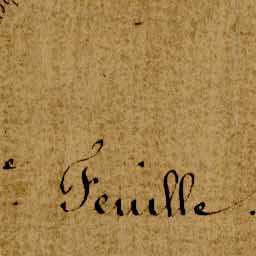 e. Feuille.